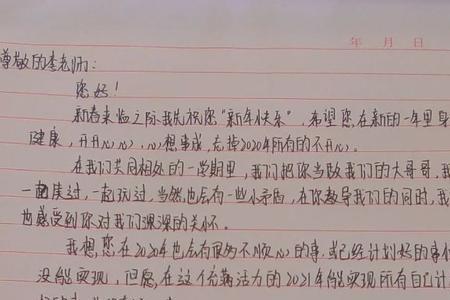 年 月 日
尊敬的李老师:
您好!
新春来临之际我先祝您"新年快乐",希望您在新的一年里身
健康,开开心心,心想事成,忘掉2020年所有的不开心。
在我们共同相处的一学期里,我们把你当做我们的大哥哥,我
一起度过,一起玩过,当然也会有一些小矛盾,在你教导我们的同时,我
也感受到你对我们深深的关怀。
我想您在2020年也会有很多不顺心的事,或已经计划好的事
没能实现,但愿在这个充满活力的2021年能实现所有自己计